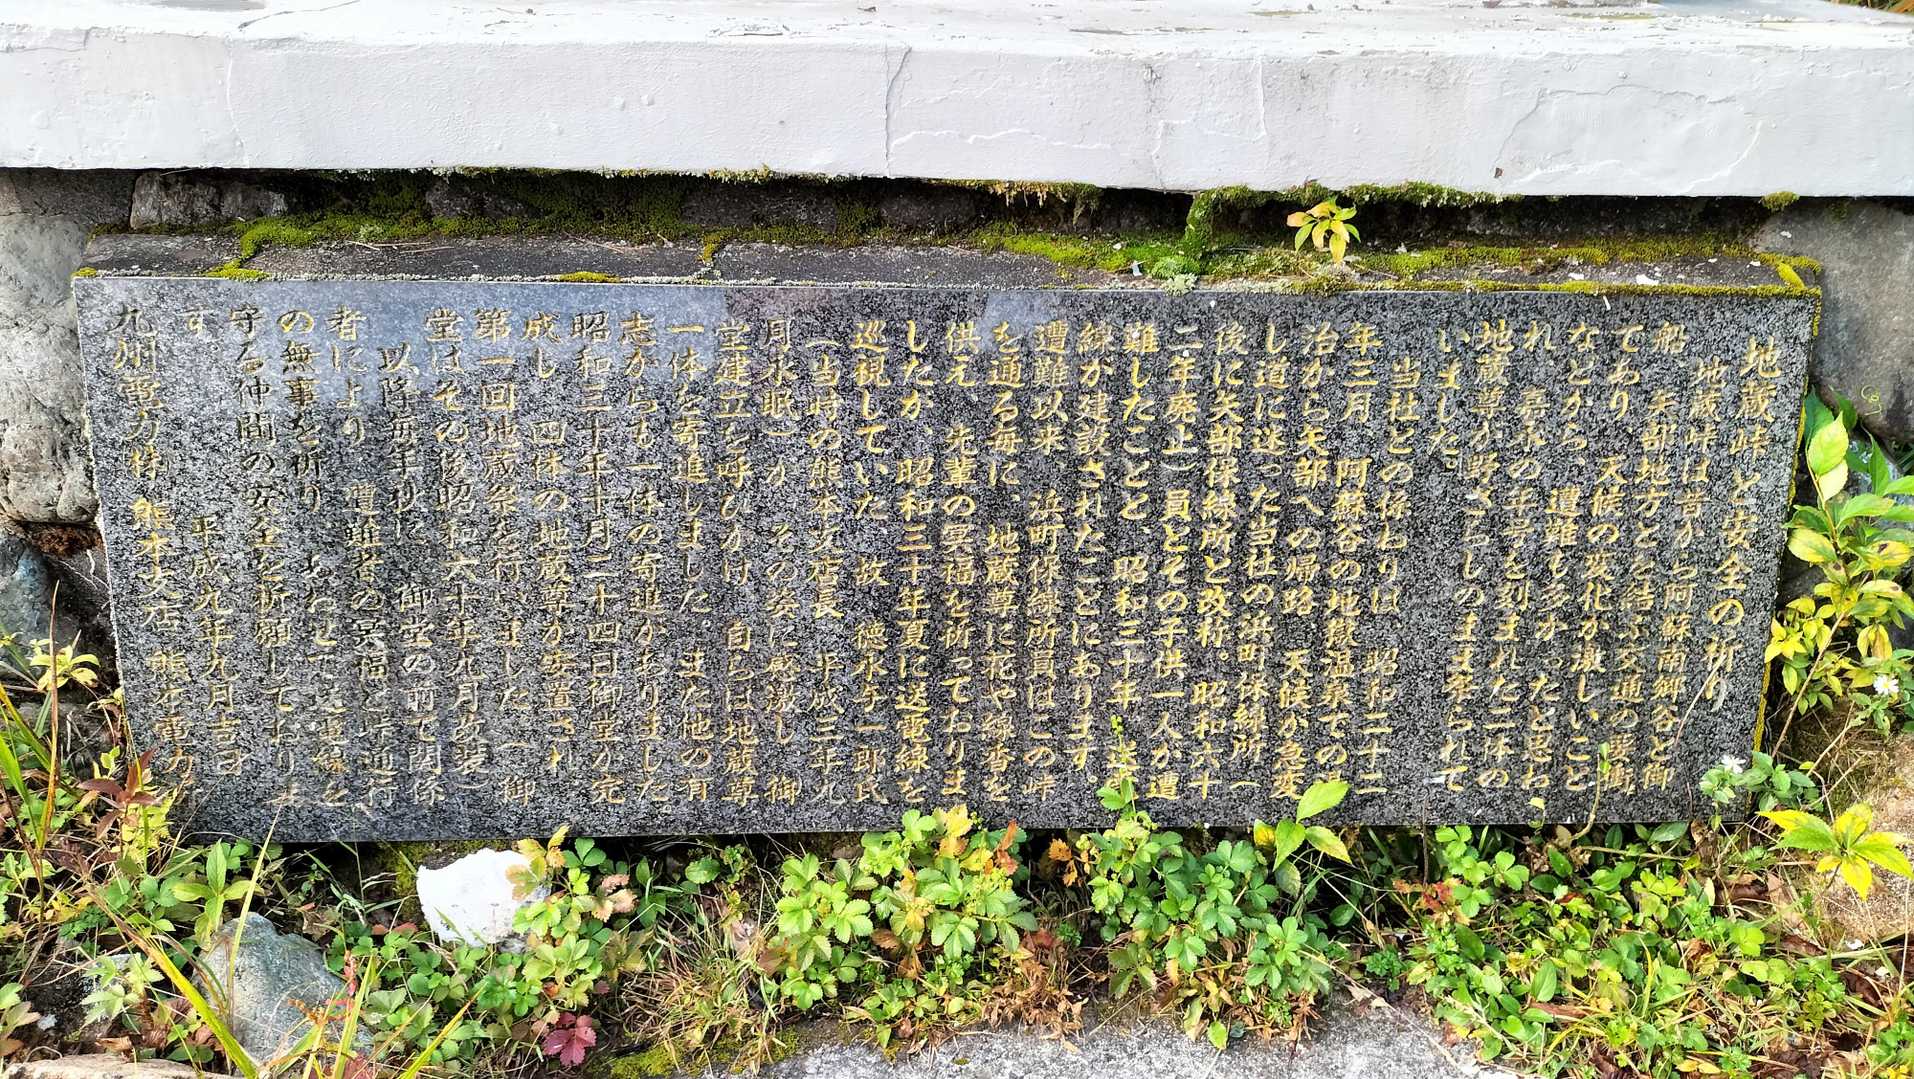 地蔵峠と安全の祈り
地蔵峠は昔から阿蘇南郷谷と御
船 矢部地方とを結ぶ交通の要衝
であり 天候の変化が激しいこと
などから、遭難も多かったと思わ
れ 嘉永の年号を刻まれた二体の
地蔵尊が野ざらしのまま祭られて
いました。
当社との係わりは 昭和二十二
年三月 阿蘇谷の地獄温泉での湯
治から矢部への帰路 天候が急変
し道に迷った当社の浜町保線所(
後に矢部保線所と改称。昭和六十
二年廃止)員とその子供一人が遭
難したことと、昭和三十年 送電
線が建設されたことにあります。
遭難以来、浜町保線所員はこの峠
を通る毎に、地蔵尊に花や線香を
供え、先輩の冥福を祈っておりま
したが、昭和三十年夏に送電線を
巡視していた 故 徳永午一郎氏
(当時の熊本支店長 平成三年九
月永眠)が その姿に感激し 御
堂建立を呼びかけ 自らは地蔵尊
一体を寄進しました。また他の有
志からも一体の寄進がありました。
昭和三十年十月二十四日御堂が完
成し 四体の地蔵尊が安置され
第一回地蔵祭を行いました(御
堂はその後昭和六十年九月改装)
以降毎年秋に 御堂の前で関係
者により 遭難者の冥福と峠通行
の無事を祈り あわせて送電線を
守る仲間の安全を祈願しておりま
す
平成九年九月吉日
九州電力㈱ 熊本支店 熊本電力